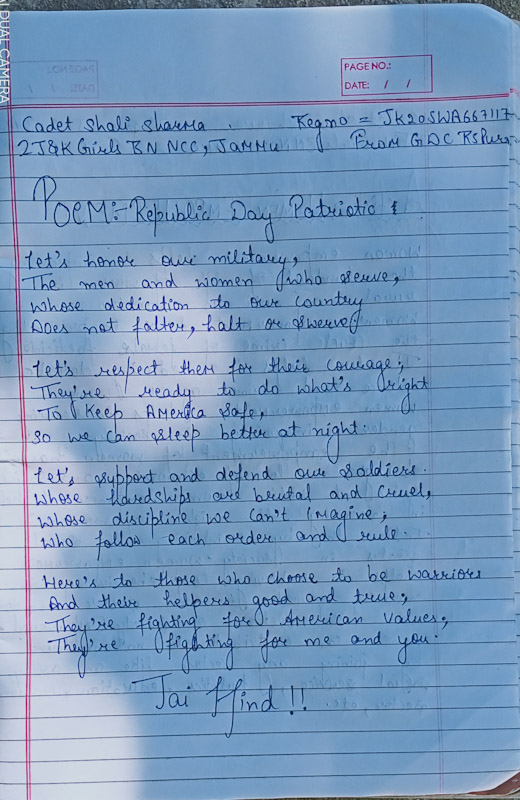 DUAL CAMERA
PAGE NO.:
DATE: / /
Cadet Shali Sharma. Regno = JK20SWA667117
2 J&K Girls BN NCC, Jammu From GDC RS Pura
Poem:- Republic Day Patriotic
Let's honor our military,
The men and women who serve,
whose dedication to our country
Does not falter, halt or swerve
Let's respect them for their courage;
They're ready to do what's right
To Keep America safe,
so we can sleep better at night.
Let's support and defend our soldiers.
whose hardships are brutal and cruel,
whose discipline we can't imagine;
who follow each order and rule.
Here's to those who choose to be warriors
And their helpers good and true;
They're fighting for American values;
They're fighting for me and you.
Jai Hind !!